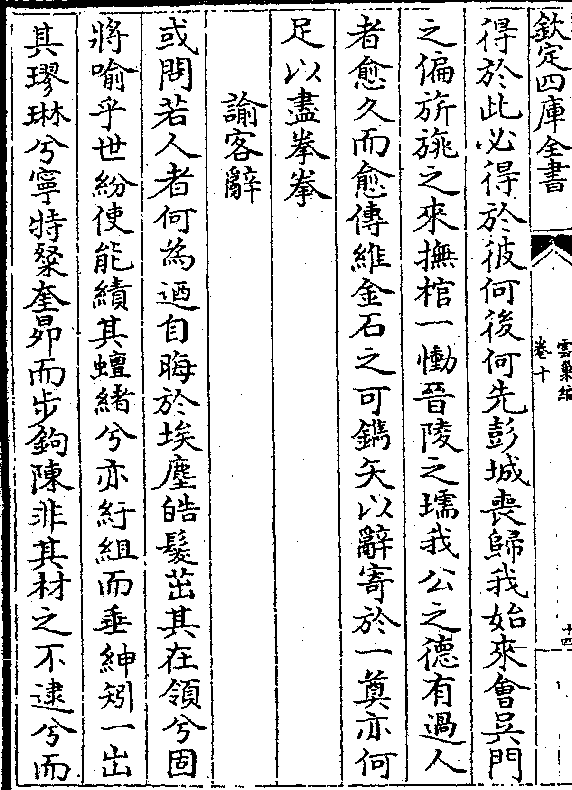 欽定四庫全書
雲巢編
卷十
十四
得於此必得於彼何後何先彭城喪歸我始來會吳門
之偏旂旐之來撫棺一慟晉陵之壖我公之德有過人
者愈久而愈傳維金石之可鐫矢以辭寄於一奠亦何
足以盡拳拳
諭客辭
或問若人者何為迺自晦於埃塵皓髮茁其在領兮固
將喻乎世紛使能績其蟺緒兮亦紆組而垂紳矧一出
其璆琳兮寧特粲奎昴而步鉤陳非其材之不逮兮而